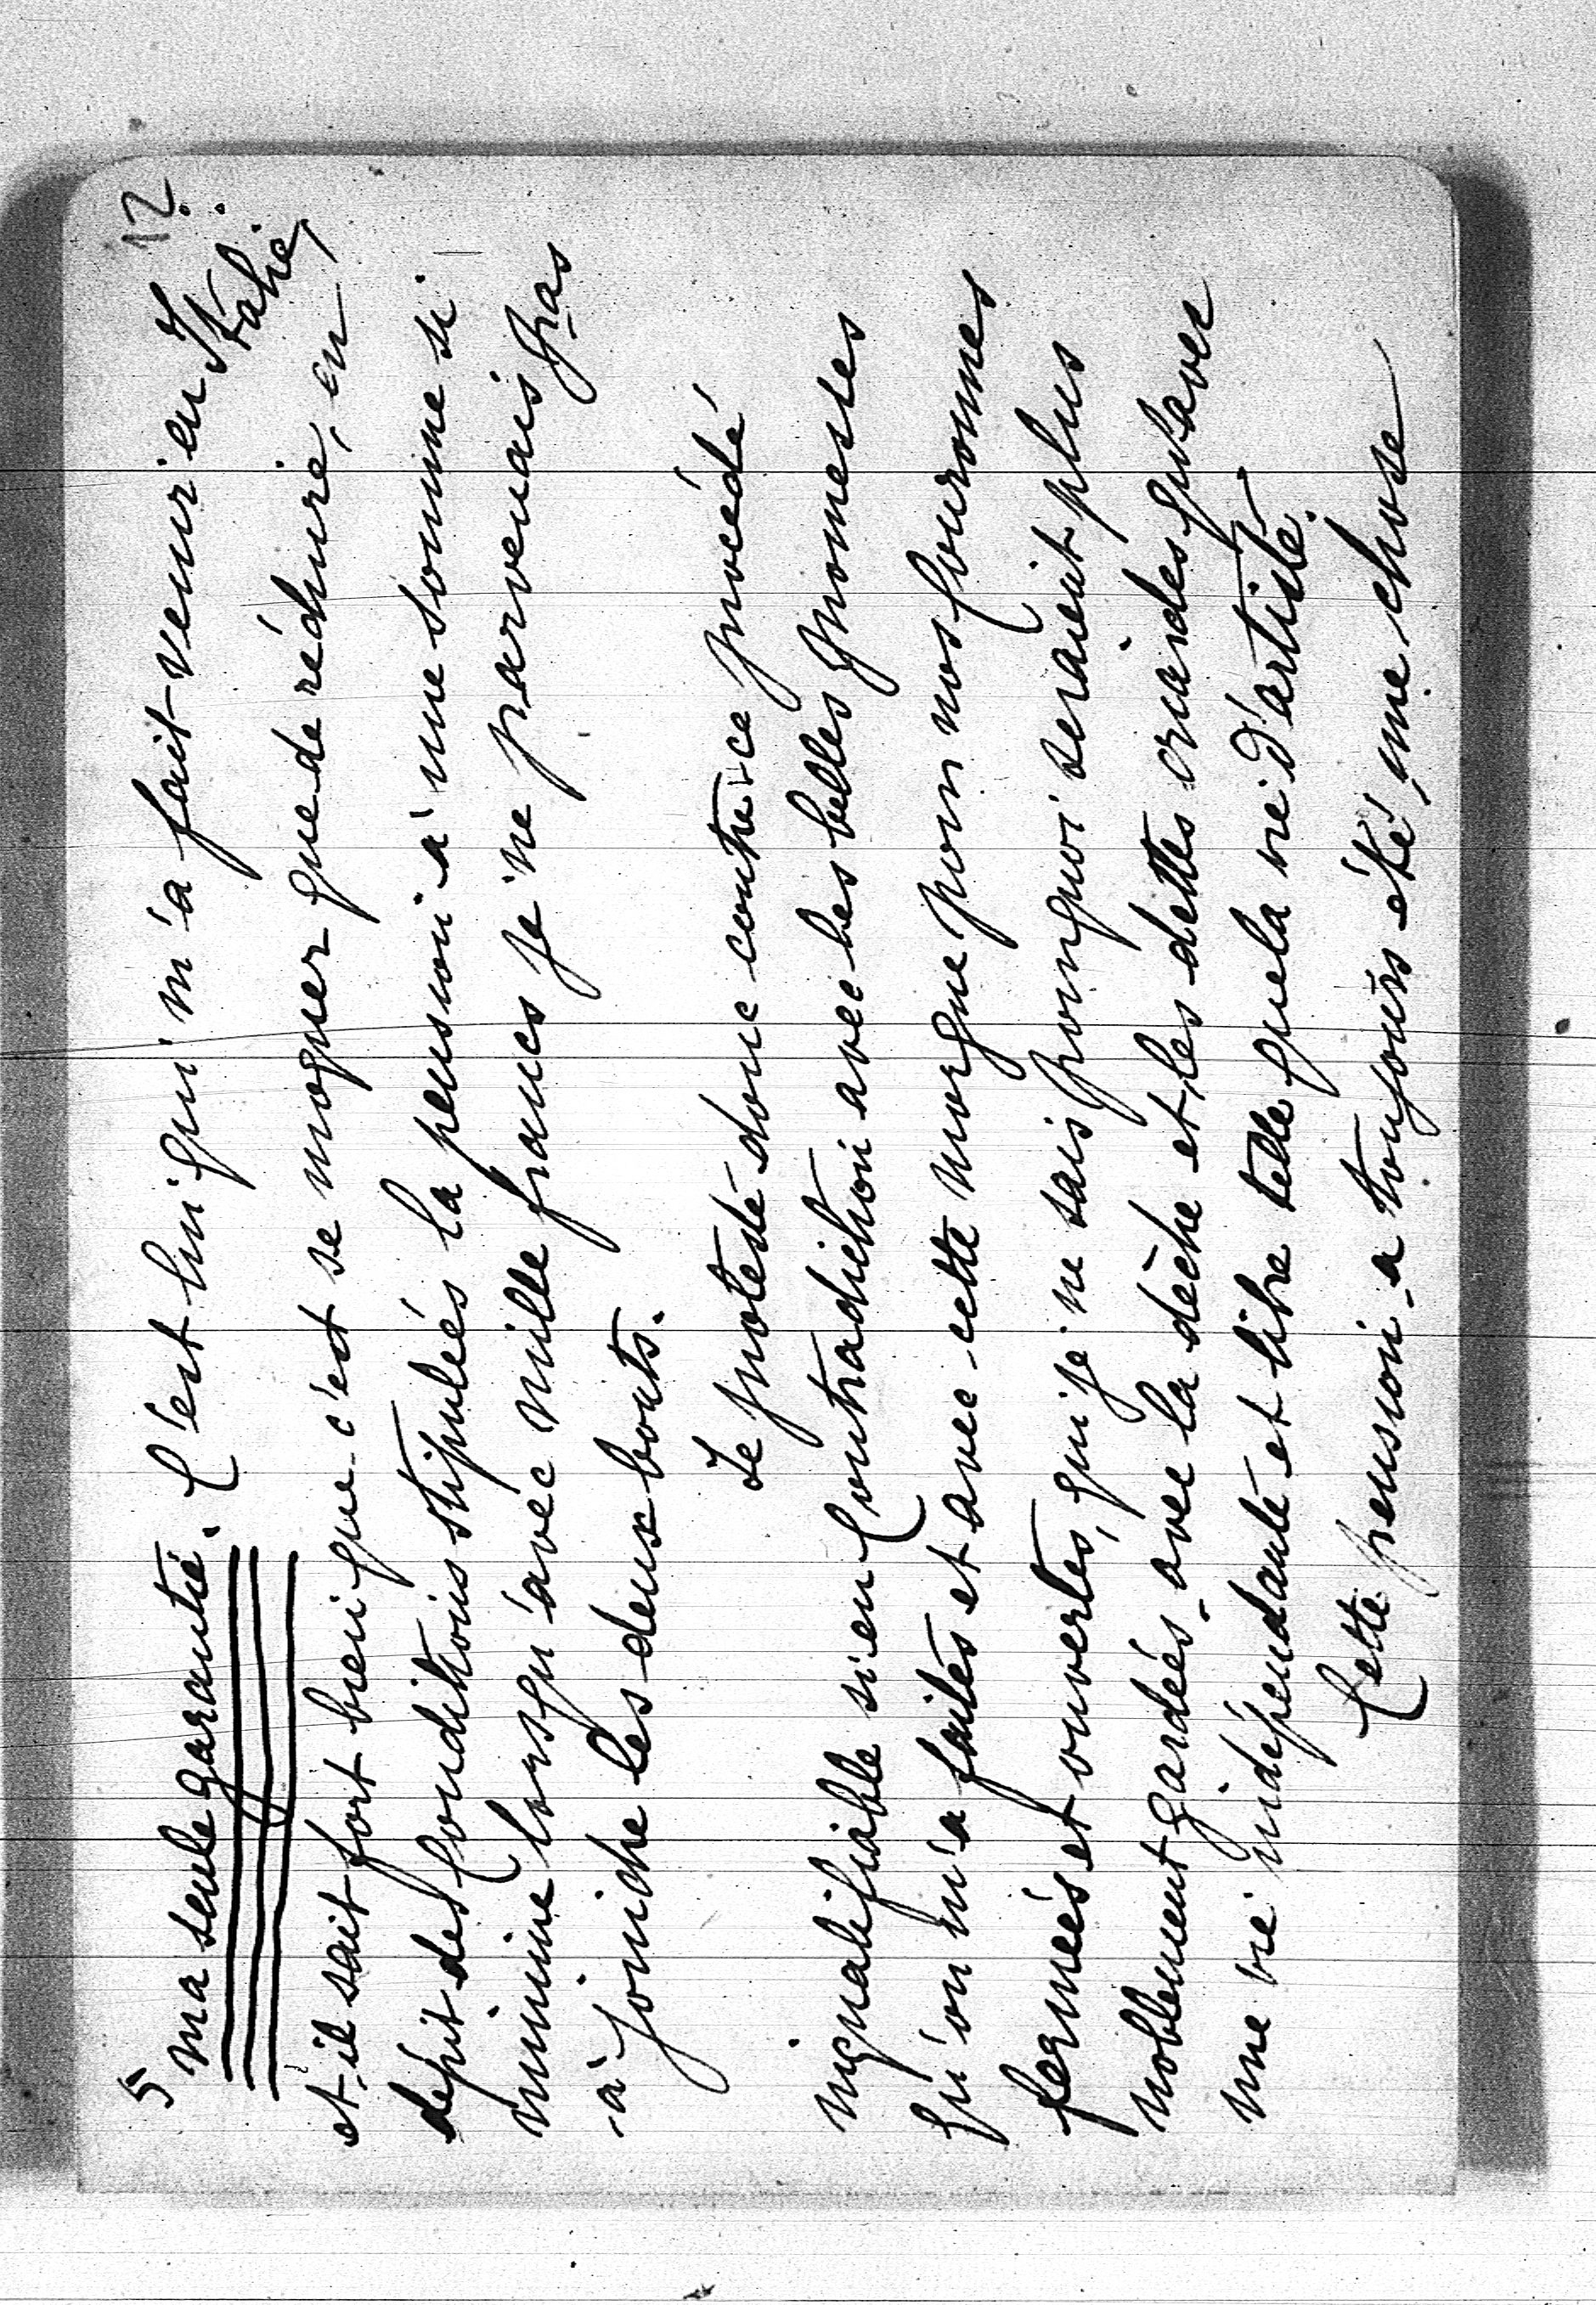 5
12
ma seule garantie. C'est lui qui m'a fait venir en Italie,
et il sait fort bien que c'est se moquer que de réduire, en
dépit des Conditions stipulées la pension à une somme si
minime lorsqu'avec mille francs je ne parvenais pas
à joindre les deux bouts.
Je proteste donc contre ce procédé
inqualifiable si en Contradiction avec les belles promesses
qu'on m'a faites et avec cette morgue pour nos couronnes
fermées et ouvertes, qui je ne sais pourquoi seraient plus
noblement gardées avec la dèche et les dettes criardes qu'avec
une vie indépendante et libre telle que la vie d'artiste.
Cette pension a toujours été une chose